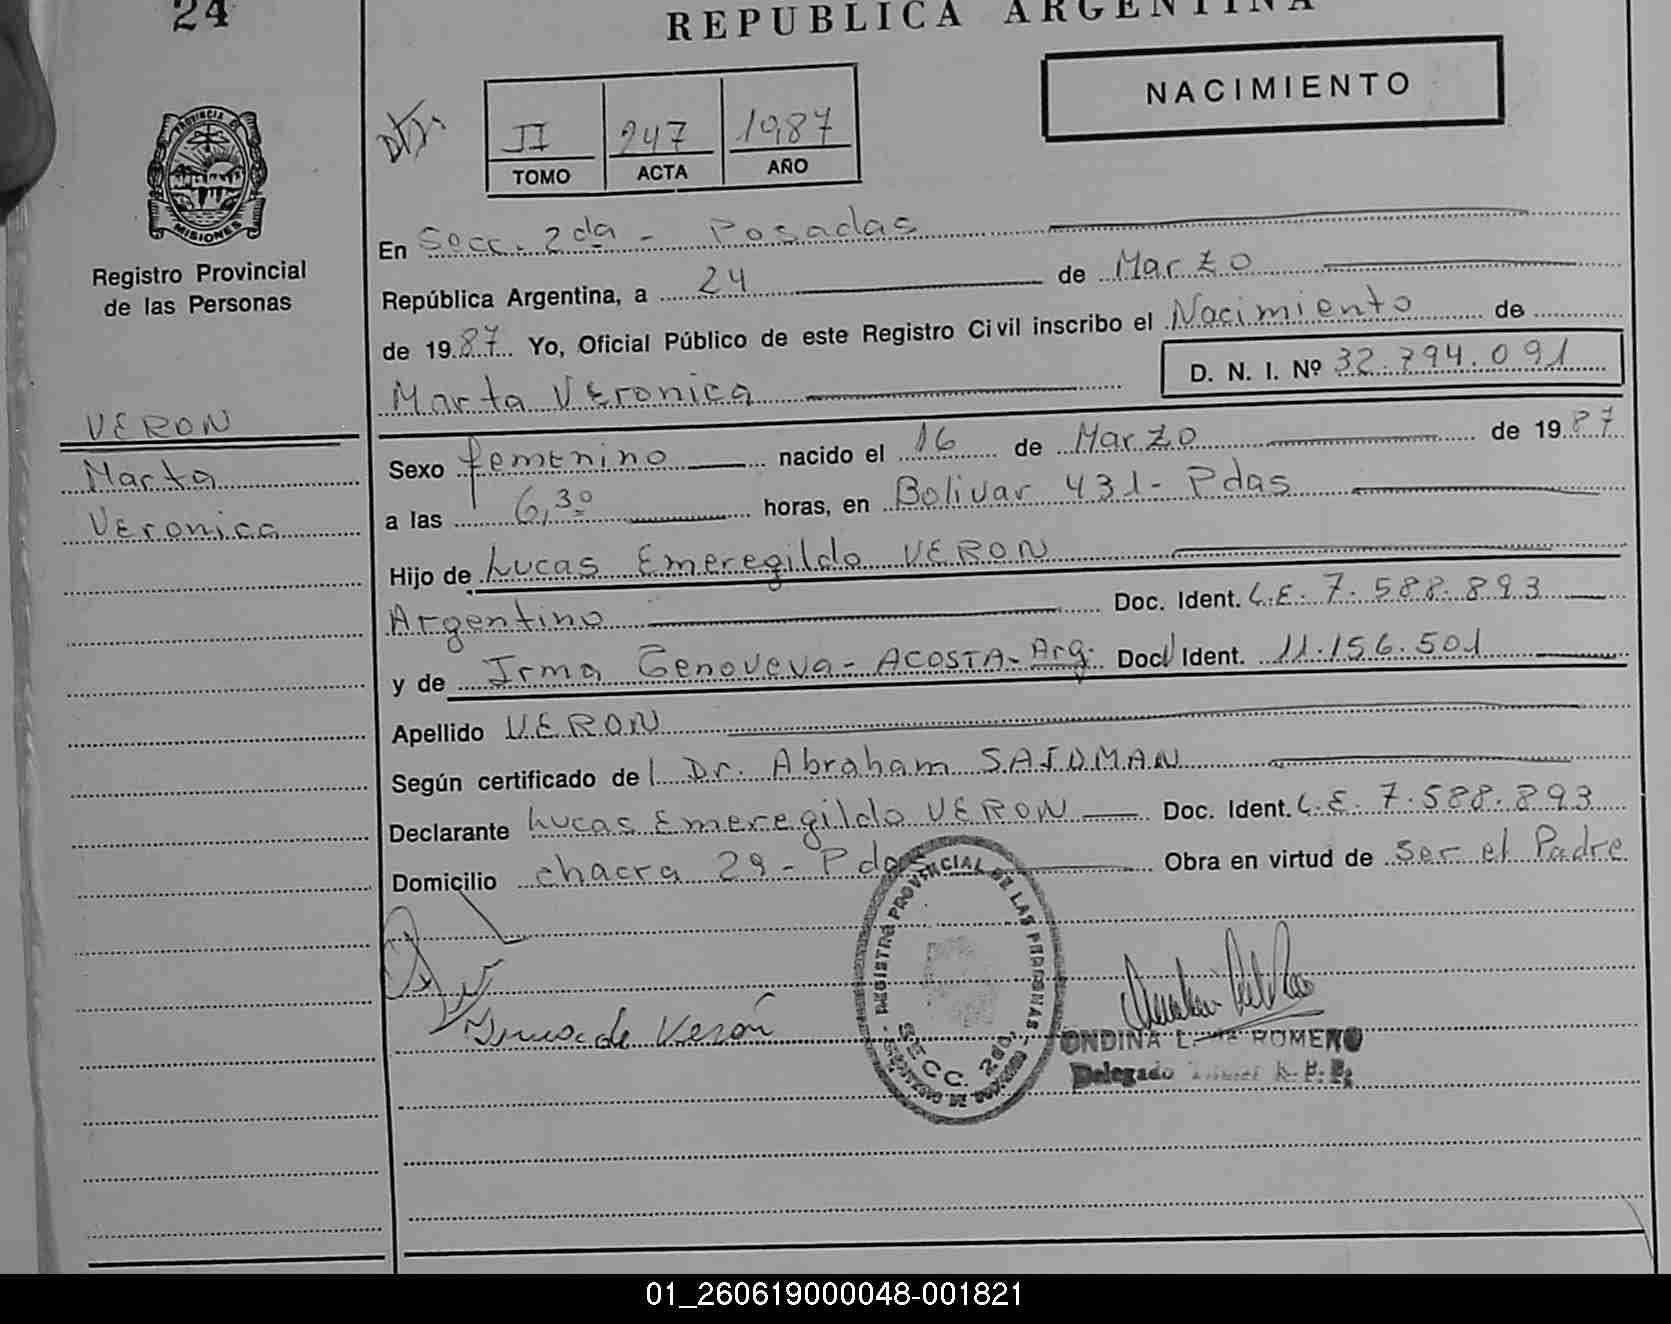 24
REPUBLICA ARGENTINA
NACIMIENTO
II 247 1987
TOMO ACTA AÑO
PROVINCIA DE
MISIONES
Registro Provincial
de las Personas
En Secc. 2da - Posadas
República Argentina, a 24 de Marzo
de 1987 Yo, Oficial Público de este Registro Civil inscribo el Nacimiento de
Marta Veronica D. N. I. Nº 32.794.091
VERON
Marta
Veronica
Sexo femenino nacido el 16 de Marzo de 1987
a las 6,30 horas, en Bolivar 431 - Pdas
Hijo de Lucas Emeregildo VERON
Argentino Doc. Ident. L.E. 7.588.893
y de Irma Genoveva - ACOSTA - Arg. Doc. Ident. 11.156.501
Apellido VERON
Según certificado de l Dr. Abraham SAIDMAN
Declarante Lucas Emeregildo VERON Doc. Ident. L.E. 7.588.893
Domicilio chacra 29 - Pdas Obra en virtud de ser el Padre
REGISTRO PROVINCIAL DE LAS PERSONAS
SECC. 2da.
de Verón
ONDINA ROMERO
Delegado R. P. P.
01_260619000048-001821